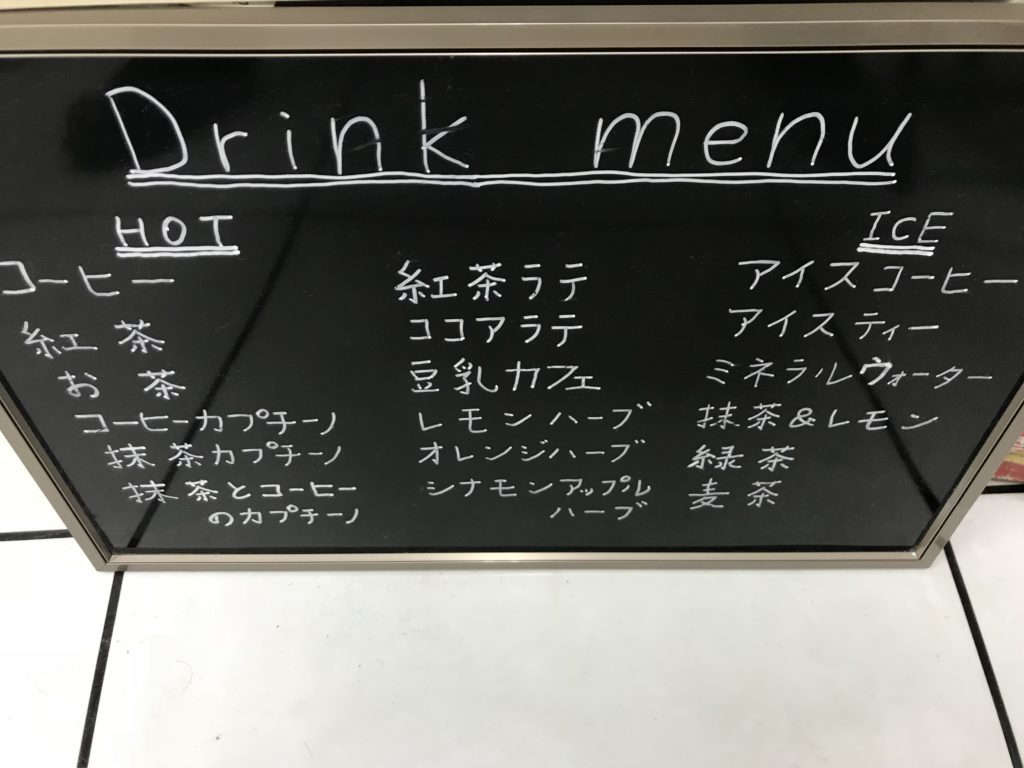 Drink menu
HOT
コーヒー
紅茶
お茶
コーヒーカプチーノ
抹茶カプチーノ
抹茶とコーヒー
のカプチーノ
紅茶ラテ
ココアラテ
豆乳カフェ
レモンハーブ
オレンジハーブ
シナモンアップル
ハーブ
ICE
アイスコーヒー
アイスティー
ミネラルウォーター
抹茶&レモン
緑茶
麦茶